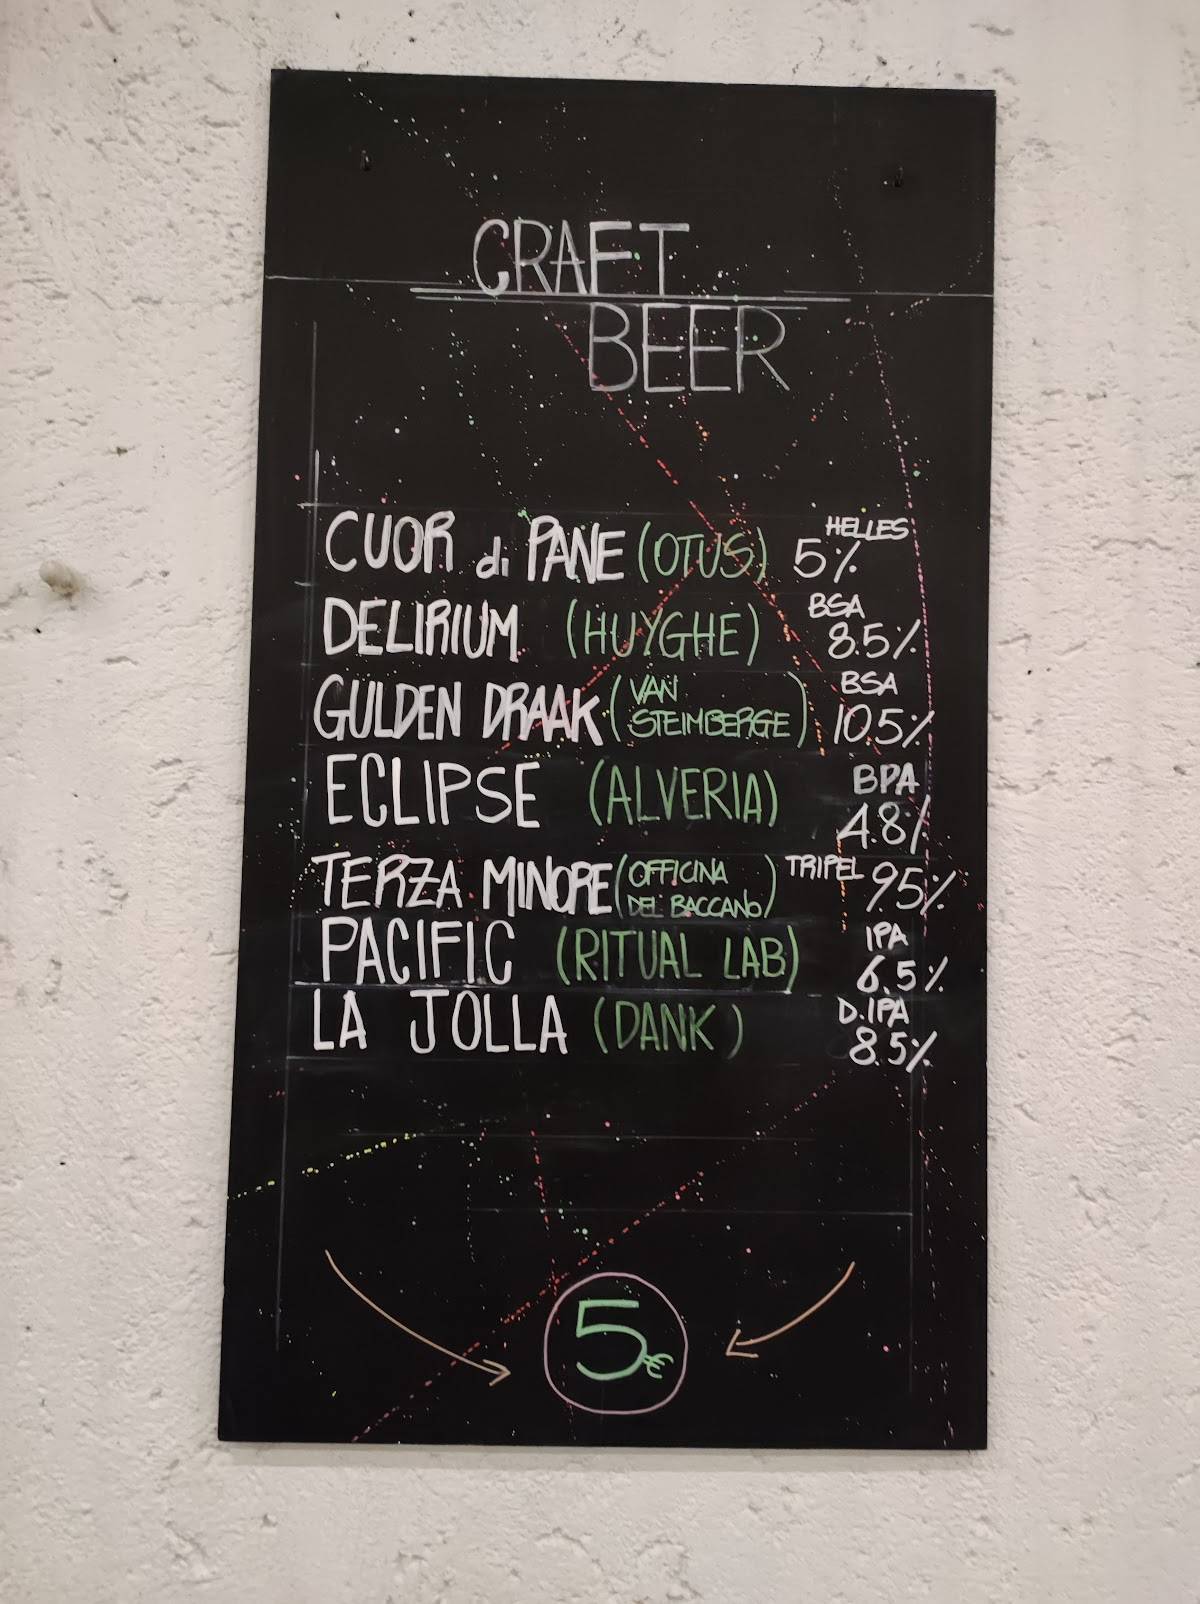 CRAFT
BEER
CUOR di PANE (OTUS) HELLES 5%
DELIRIUM (HUYGHE) BSA 8.5%
GULDEN DRAAK (VAN STEIMBERGE) BSA 10.5%
ECLIPSE (ALVERIA) BPA 4.8%
TERZA MINORE (OFFICINA DEL BACCANO) TRIPEL 9.5%
PACIFIC (RITUAL LAB) IPA 6.5%
LA JOLLA (DANK) D.IPA 8.5%
5€